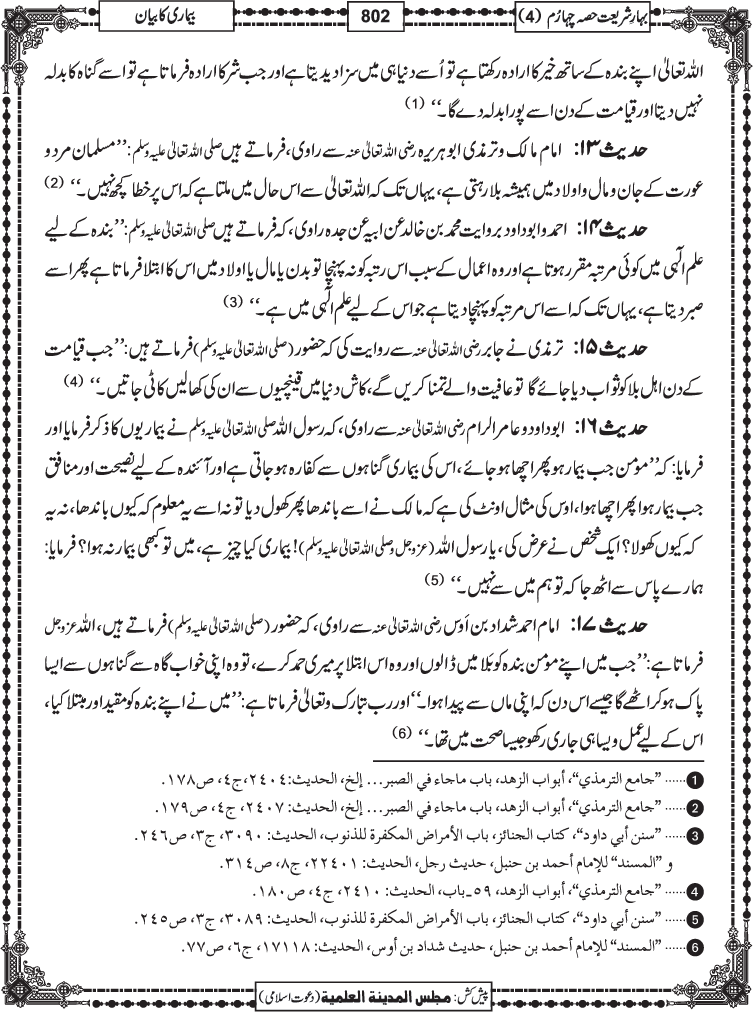 بہارِ شریعت حصہ چہارم (4)
802
بیماری کا بیان
اللہ تعالیٰ اپنے بندہ کے ساتھ خیر کا ارادہ رکھتا ہے تو اُسے دنیا ہی میں سزا دیدیتا ہے اور جب شر کا ارادہ فرماتا ہے تو اسے گناہ کا بدلہ
نہیں دیتا اور قیامت کے دن اسے پورا بدلہ دے گا۔‘‘ (1)
حدیث ۱۳: امام مالک و ترمذی ابوہریرہ رضی اللہ تعالیٰ عنہ سے راوی، فرماتے ہیں صلی اللہ تعالیٰ علیہ وسلم: ’’مسلمان مرد و
عورت کے جان و مال و اولاد میں ہمیشہ بلا رہتی ہے، یہاں تک کہ اللہ تعالیٰ سے اس حال میں ملتا ہے کہ اس پر خطا کچھ نہیں۔‘‘ (2)
حدیث ۱۴: احمد و ابو داود بروایت محمد بن خالد عن ابیہ عن جدہ راوی، کہ فرماتے ہیں صلی اللہ تعالیٰ علیہ وسلم: ’’بندہ کے لیے
علم الٰہی میں کوئی مرتبہ مقرر ہوتا ہے اور وہ اعمال کے سبب اس رتبہ کو نہ پہنچا تو بدن یا مال یا اولاد میں اس کا ابتلا فرماتا ہے پھر اسے
صبر دیتا ہے، یہاں تک کہ اسے اس مرتبہ کو پہنچا دیتا ہے جو اس کے لیے علم الٰہی میں ہے۔‘‘ (3)
حدیث ۱۵: ترمذی نے جابر رضی اللہ تعالیٰ عنہ سے روایت کی کہ حضور (صلی اللہ تعالیٰ علیہ وسلم) فرماتے ہیں: ’’جب قیامت
کے دن اہل بلا کو ثواب دیا جائے گا تو عافیت والے تمنا کریں گے، کاش دنیا میں قینچیوں سے ان کی کھالیں کاٹی جاتیں۔‘‘ (4)
حدیث ۱۶: ابو داود و عامر الرام رضی اللہ تعالیٰ عنہ سے راوی، کہ رسول اللہ صلی اللہ تعالیٰ علیہ وسلم نے بیماریوں کا ذکر فرمایا اور
فرمایا: کہ ’’مؤمن جب بیمار ہو پھر اچھا ہو جائے، اس کی بیماری گناہوں سے کفارہ ہو جاتی ہے اور آئندہ کے لیے نصیحت اور منافق
جب بیمار ہوا پھر اچھا ہوا، اوس کی مثال اونٹ کی ہے کہ مالک نے اسے باندھا پھر کھول دیا تو نہ اسے یہ معلوم کہ کیوں باندھا، نہ یہ
کہ کیوں کھولا؟ ایک شخص نے عرض کی، یا رسول اللہ (عزوجل وصلی اللہ تعالیٰ علیہ وسلم)! بیماری کیا چیز ہے، میں تو کبھی بیمار نہ ہوا؟ فرمایا:
ہمارے پاس سے اٹھ جا کہ تو ہم میں سے نہیں۔‘‘ (5)
حدیث ۱۷: امام احمد شداد بن اَوس رضی اللہ تعالیٰ عنہ سے راوی، کہ حضور (صلی اللہ تعالیٰ علیہ وسلم) فرماتے ہیں، اللہ عزوجل
فرماتا ہے: ’’جب میں اپنے مؤمن بندہ کو بَلا میں ڈالوں اور وہ اس ابتلا پر میری حمد کرے، تو وہ اپنی خواب گاہ سے گناہوں سے ایسا
پاک ہو کر اٹھے گا جیسے اس دن کہ اپنی ماں سے پیدا ہوا۔‘‘ اور رب تبارک وتعالیٰ فرماتا ہے: ’’میں نے اپنے بندہ کو مقید اور مبتلا کیا،
اس کے لیے عمل ویسا ہی جاری رکھو جیسا صحت میں تھا۔‘‘ (6)
1 ...... ”جامع الترمذي“، أبواب الزهد، باب ماجاء في الصبر... إلخ، الحديث: ٢٤٠٤، ج٤، ص١٧٨.
2 ...... ”جامع الترمذي“، أبواب الزهد، باب ماجاء في الصبر... إلخ، الحديث: ٢٤٠٧، ج٤، ص١٧٩.
3 ...... ”سنن أبي داود“، كتاب الجنائز، باب الأمراض المكفرة للذنوب، الحديث: ٣٠٩٠، ج٣، ص٢٤٦.
و ”المسند“ للإمام أحمد بن حنبل، حديث رجل، الحديث: ٢٢٤٠١، ج٨، ص٣١٤.
4 ...... ”جامع الترمذي“، أبواب الزهد، ٥٩ـ باب، الحديث: ٢٤١٠، ج٤، ص١٨٠.
5 ...... ”سنن أبي داود“، كتاب الجنائز، باب الأمراض المكفرة للذنوب، الحديث: ٣٠٨٩، ج٣، ص٢٤٥.
6 ...... ”المسند“ للإمام أحمد بن حنبل، حديث شداد بن أوس، الحديث: ١٧١١٨، ج٦، ص٧٧.
پیش کش: مجلس المدینة العلمیة (دعوتِ اسلامی)